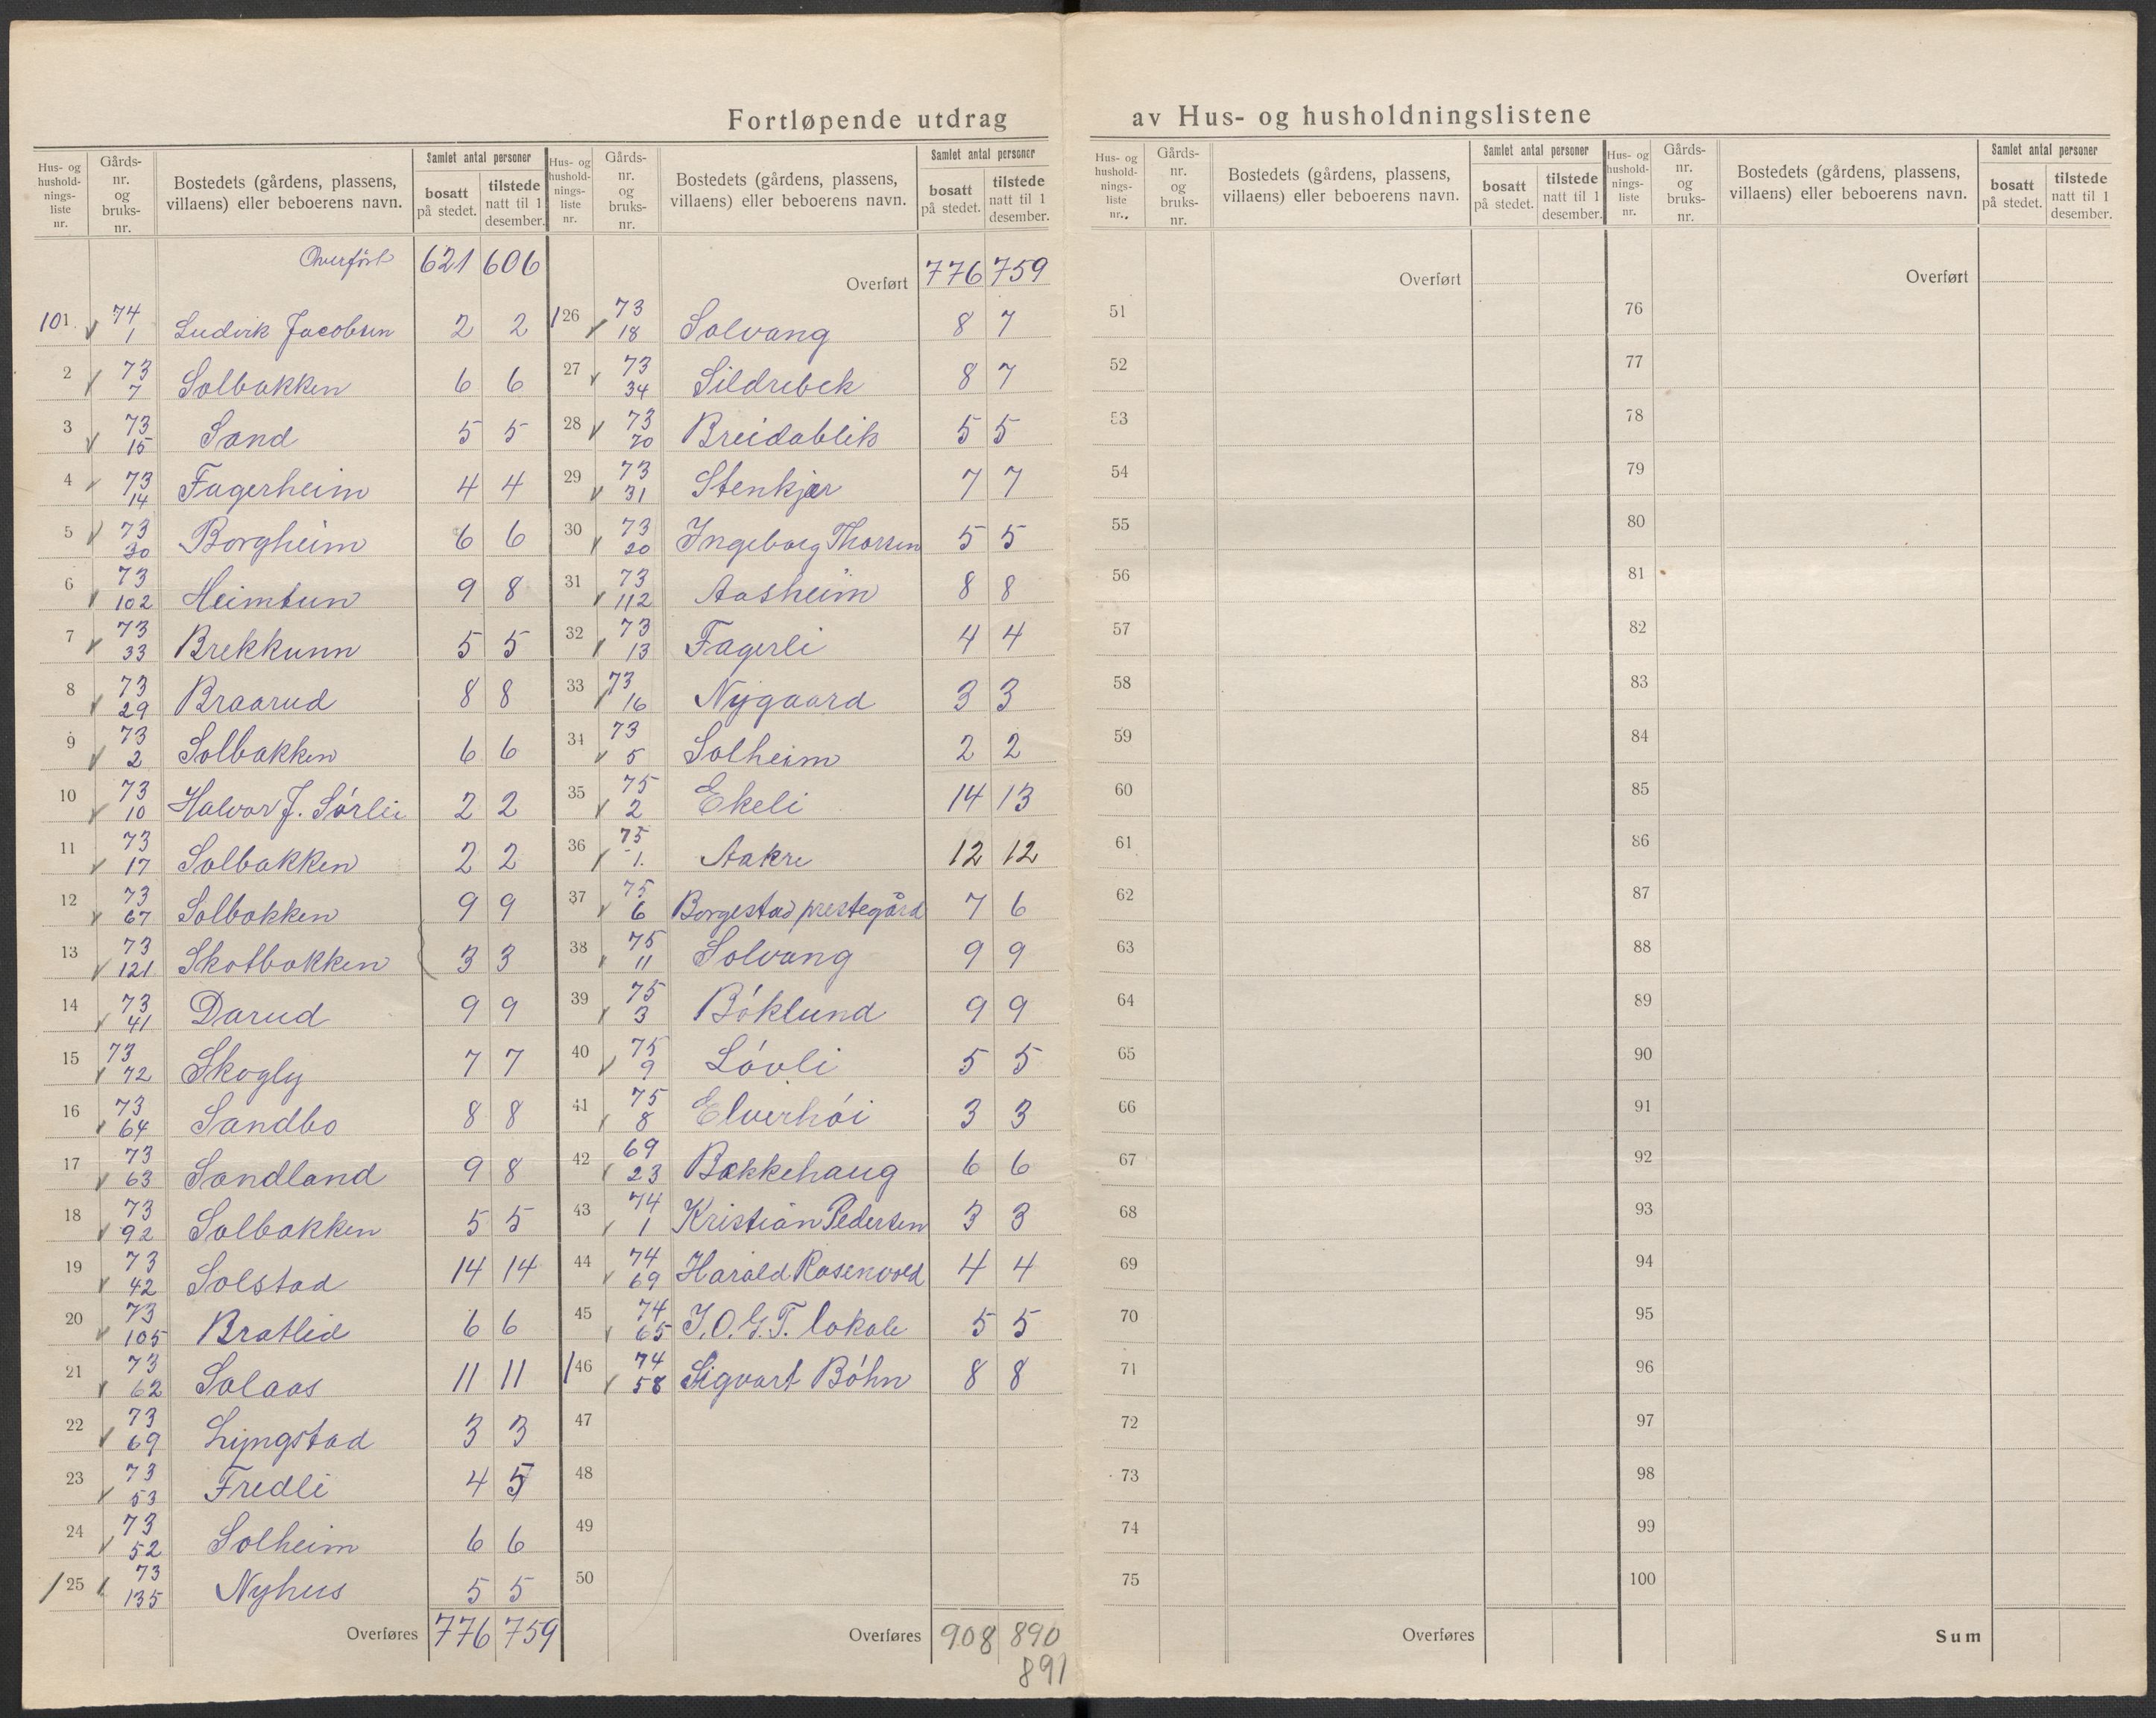 Fortløpende utdrag av Hus- og husholdningslistene
Hus- og hushold-nings-liste nr. Gårds-nr. og bruks-nr. Bostedets (gårdens, plassens, villaens) eller beboerens navn. Samlet antal personer bosatt på stedet. tilstede natt til 1 desember.
Overført 621 606
101 74 1 Ludvik Jacobsen 2 2
2 73 7 Solbakken 6 6
3 73 15 Sand 5 5
4 73 14 Fagerheim 4 4
5 73 30 Borgheim 6 6
6 73 102 Heimtun 9 8
7 73 33 Brekkunn 5 5
8 73 29 Braarud 8 8
9 73 2 Solbakken 6 6
10 73 10 Halvor J. Sørlie 2 2
11 73 17 Solbakken 2 2
12 73 67 Solbakken 9 9
13 73 121 Skotbakken 3 3
14 73 41 Darud 9 9
15 73 72 Skogly 7 7
16 73 64 Sandbo 8 8
17 73 63 Sandland 9 8
18 73 92 Solbakken 5 5
19 73 42 Solstad 14 14
20 73 105 Bratlid 6 6
21 73 62 Solaas 11 11
22 73 69 Lyngstad 3 3
23 73 53 Fredli 4 5
24 73 52 Solheim 6 6
125 73 135 Nyhus 5 5
Overføres 776 759
Hus- og hushold-nings-liste nr. Gårds-nr. og bruks-nr. Bostedets (gårdens, plassens, villaens) eller beboerens navn. Samlet antal personer bosatt på stedet. tilstede natt til 1 desember.
Overført 776 759
126 73 18 Solvang 8 7
27 73 34 Sildrebek 8 7
28 73 70 Breidablik 5 5
29 73 31 Stenkjær 7 7
30 73 20 Ingeborg Thorsen 5 5
31 73 112 Aasheim 8 8
32 73 13 Fagerli 4 4
33 73 16 Nygaard 3 3
34 73 5 Solheim 2 2
35 75 2 Ekeli 14 13
36 75 1. Aakre 12 12
37 75 6 Borgestad prestegård 7 6
38 75 11 Solvang 9 9
39 75 3 Bøklund 9 9
40 75 9 Løvli 5 5
41 75 8 Elverhøi 3 3
42 69 23 Bakkehaug 6 6
43 74 1 Kristian Pedersen 3 3
44 74 69 Harald Rosenvold 4 4
45 74 65 I.O.G.T. lokale 5 5
146 74 58 Sigvart Bøhn 8 8
47
48
49
50
Overføres 908 890
891
Hus- og hushold-nings-liste nr. Gårds-nr. og bruks-nr. Bostedets (gårdens, plassens, villaens) eller beboerens navn. Samlet antal personer bosatt på stedet. tilstede natt til 1 desember.
Overført
51
52
53
54
55
56
57
58
59
60
61
62
63
64
65
66
67
68
69
70
71
72
73
74
75
Overføres
Hus- og hushold-nings-liste nr. Gårds-nr. og bruks-nr. Bostedets (gårdens, plassens, villaens) eller beboerens navn. Samlet antal personer bosatt på stedet. tilstede natt til 1 desember.
Overført
76
77
78
79
80
81
82
83
84
85
86
87
88
89
90
91
92
93
94
95
96
97
98
99
100
Sum